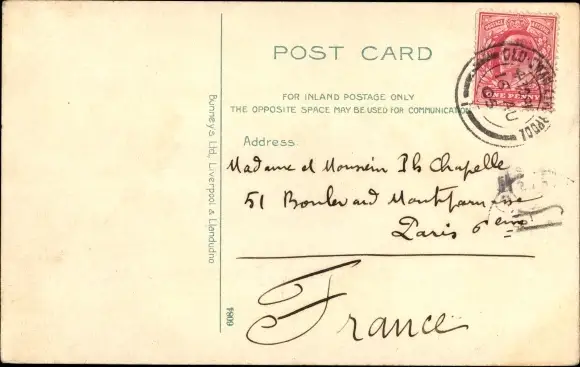 POST CARD
FOR INLAND POSTAGE ONLY
THE OPPOSITE SPACE MAY BE USED FOR COMMUNICATION
Address
Madame et Monsein Ph Chapelle
51 Boulevard Montparnasse
Paris 6 eme
France
Bunneys Ltd, Liverpool & Llandudno
1809
POSTAGE REVENUE
ONE PENNY
LIVERPOOL
AU
05